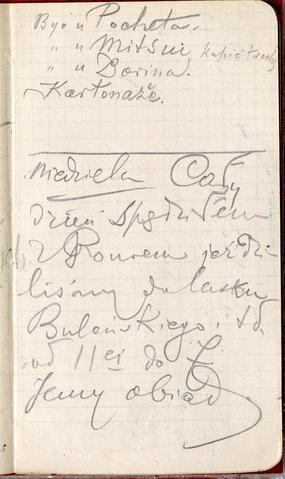 Być u Pocheta.
" u Mitsui kupić
" u Borina.
Kartonaże.
niedziela Cały
dzień spędziłem
z jeździ
liśmy do lasku
Bulońskiego i td
od 11 ej do 7.
Jemy obiad